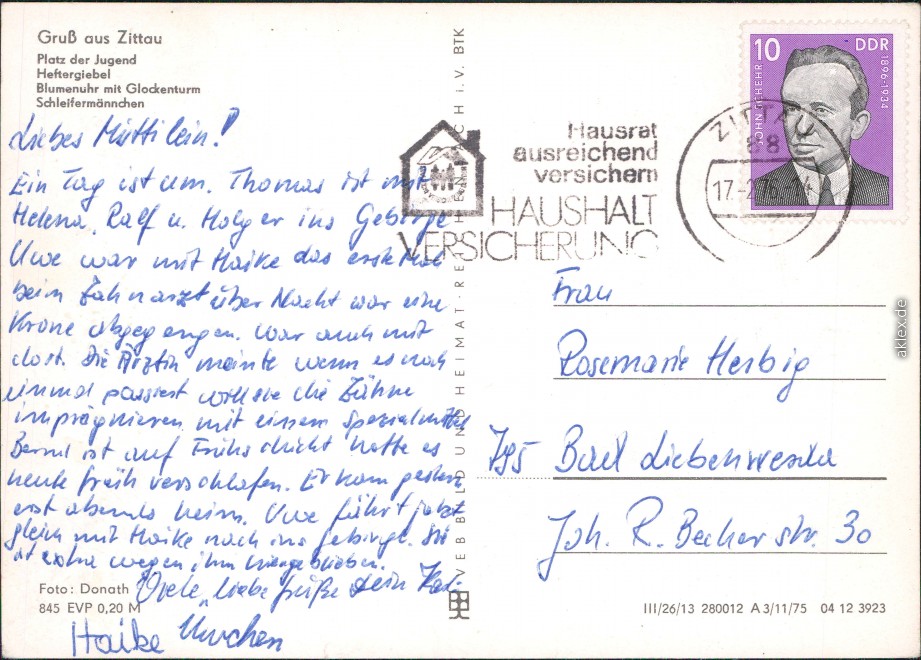 Gruß aus Zittau
Platz der Jugend
Heftergiebel
Blumenuhr mit Glockenturm
Schleifermännchen
Liebes Muttilein!
Ein Tag ist um. Thomas ist mit
Helena, Ralf u. Holger ins Gebirge
Uwe war mit Haike das erste Mal
beim Zahnarzt über Nacht war eine
Krone abgegangen. War auch mit
dort. Die Ärztin meinte wenn es noch
einmal passiert will sie die Zähne
imprägnieren mit einem Spezialmittel
Bernd ist auf Frühschicht hatte es
heute früh verschlafen. Er kam gestern
erst abends heim. Uwe fährt jetzt
gleich mit Haike nach ins Gebirge. Sie
ist extra wegen ihm hiergeblieben.
Viele liebe Grüße Dein
Haike
Foto: Donath
845 EVP 0,20 M
VEB BILD UND HEIMAT · REICHENBACH i. V. BTK
Hausrat
ausreichend
versichern
HAUSHALT
VERSICHERUNG
ZITTAU
88
17.-2.76-14
10 DDR
JOHN SCHEHR
1896-1934
Frau
Rosemarie Herbig
795 Bad Liebenwerda
Joh. R. Becher str. 30
III/26/13 280012 A 3/11/75 04 12 3923
aklex.de